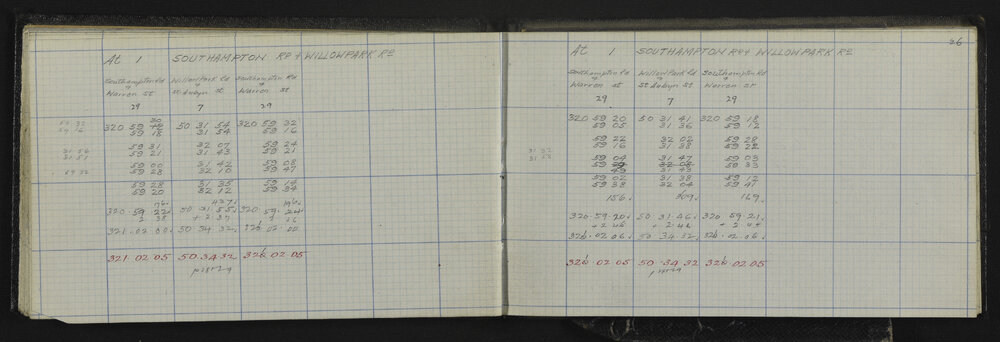 At 1 SOUTHAMPTON RD & WILLOWPARK RD
Southampton Rd Willow Park Rd Southampton Rd
& & &
Warren St St Aubyn St Warren St
29 7 29
30
320 59 50 31 54 320 59 32
59 18 31 54 59 16
59 31 32 07 59 24
59 21 31 43 59 21
59 00 31 42 59 08
59 28 32 10 59 47
59 28 31 35 59 14
59 20 32 12 59 34
196. 437. 196.
320. 59. 22. 50. 31. 55. 320 59. 24.
2 38 + 2 37 2 36
321. 02 00. 50. 34 32. 326. 02. 00
321. 02 05 50. 34. 32 326. 02. 05
p 18729
31 56
31 51
59 32
26
At 1 SOUTHAMPTON RD & WILLOWPARK RD
Southampton Rd Willow Park Rd Southampton Rd
& & &
Warren St St Aubyn St Warren St
29 7 29
320 59 20 50 31 41 320 59 18
59 05 31 36 59 12
59 22 32 02 59 28
59 16 31 38 59 22
59 04 31 47 59 03
59 32 08 50 33
49 31 43
59 02 31 38 59 12
59 38 32 04 59 41
156. 309. 169.
320. 59. 20. 50. 31. 46. 320 59 21.
+ 2 46 + 2. 46 + 2 45
326. 02 06. 50 34 32. 326. 02. 06.
326. 02. 05 50. 34. 32 326. 02. 05
p 18729